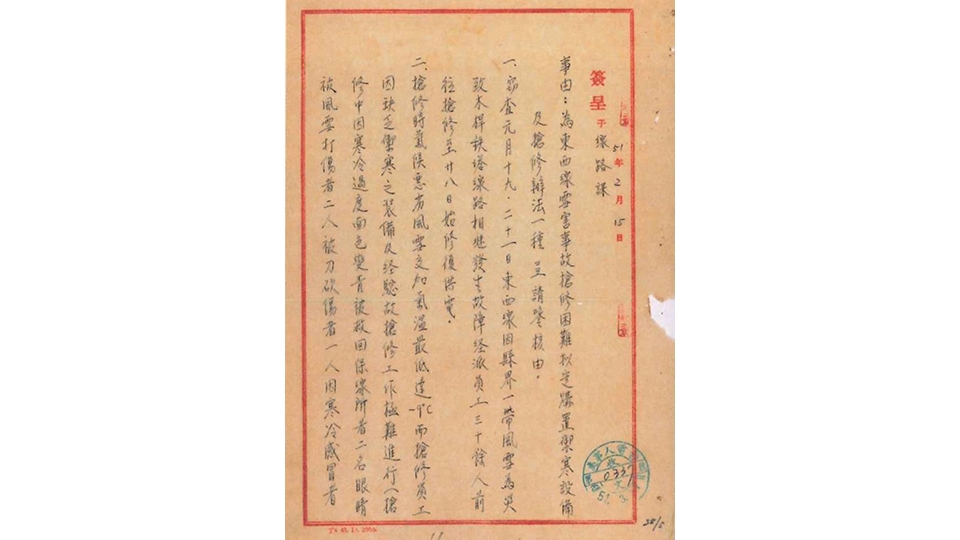 簽呈 于線路課 51年2月15日
事由：為東西線雪害事故搶修困難擬定購置禦寒設備
及搶修辦法一種 呈請鑒核由。
一、竊查元月十九、二十一日東西線因縣界一帶風雪為災
致木桿鉄塔線路相繼發生故障経派員工三十餘人前
往搶修至廿八日始修復供電。
二、搶修時氣候惡劣風雪交加氣溫最低達-9℃而搶修員工
因缺乏禦寒之裝備及経驗故搶修工作極難進行(搶
修中因寒冷過度面色變青被救回保線所者二名眼睛
被風雪打傷者二人被刀砍傷者一人因寒冷感冒者
0337
28/5